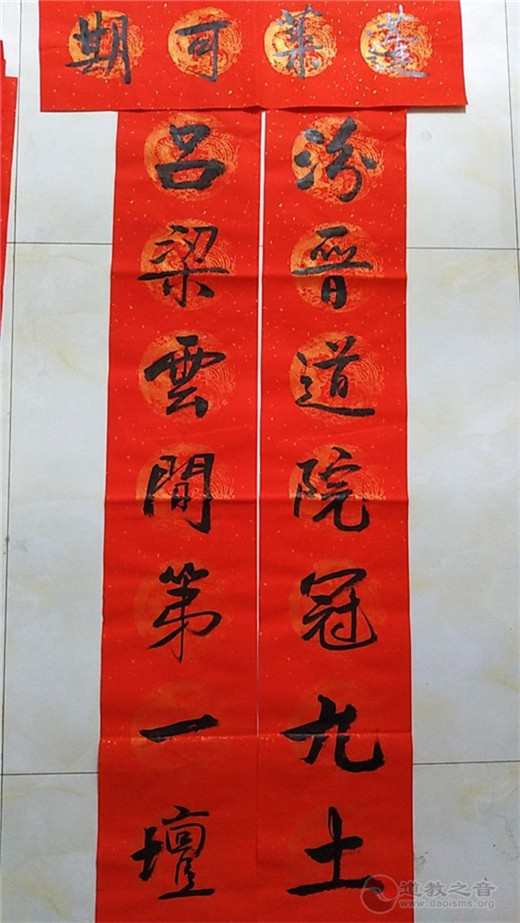 蓬萊可期
汾晉道院冠九土
呂梁雲間第一壇
道教之音
www.daoisms.org